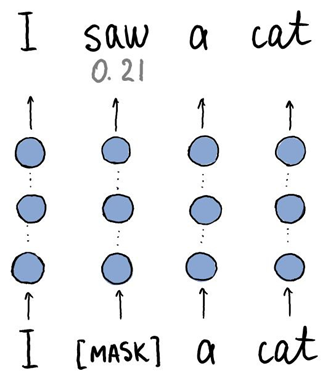 I saw a cat
0.21
I [MASK] a cat